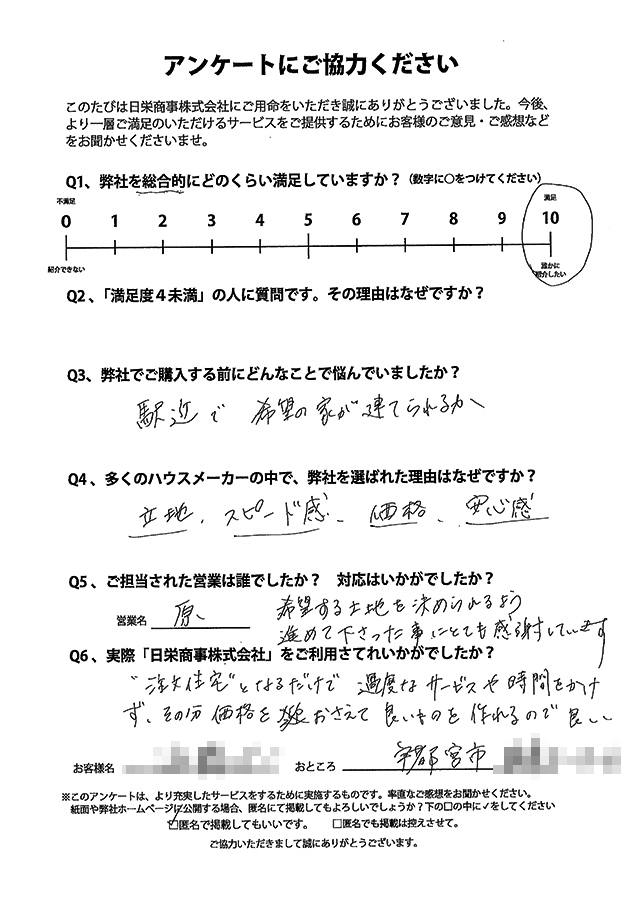 アンケートにご協力ください
このたびは日栄商事株式会社にご用命をいただき誠にありがとうございました。今後、
より一層ご満足のいただけるサービスをご提供するためにお客様のご意見・ご感想など
をお聞かせくださいませ。
Q1、弊社を総合的にどのくらい満足していますか？（数字に○をつけてください）
不満足 満足
0 1 2 3 4 5 6 7 8 9 10
紹介できない 誰かに
紹介したい
Q2、「満足度４未満」の人に質問です。その理由はなぜですか？
Q3、弊社でご購入する前にどんなことで悩んでいましたか？
駅近で 希望の家が建てられるか
Q4、多くのハウスメーカーの中で、弊社を選ばれた理由はなぜですか？
立地、スピード感、価格、安心感
Q5、ご担当された営業は誰でしたか？ 対応はいかがでしたか？
営業名 原 希望する土地を決められるよう
進めて下さった事にとても感謝しています
Q6、実際「日栄商事株式会社」をご利用さてれいかがでしたか？
"注文住宅"となるだけで 過度なサービスや時間をかけ
ず、その分価格を おさえて良いものを作れるので良い
お客様名 おところ 宇都宮市
※このアンケートは、より充実したサービスをするために実施するものです。率直なご感想をお聞かせください。
紙面や弊社ホームページに公開する場合、匿名にて掲載してもよろしいでしょうか？下の□の中に✓をしてください
☑匿名で掲載してもいいです。 □匿名でも掲載は控えさせて。
ご協力いただきまして誠にありがとうございます。